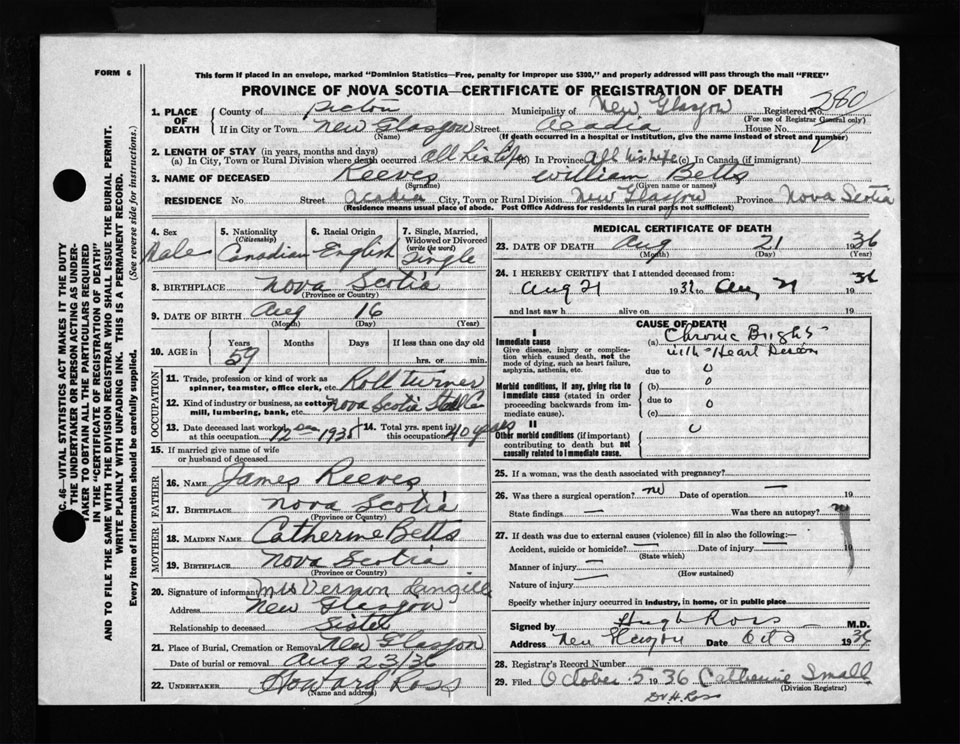 FORM 6
This form if placed in an envelope, marked "Dominion Statistics—Free, penalty for improper use $300," and properly addressed will pass through the mail "FREE"
PROVINCE OF NOVA SCOTIA—CERTIFICATE OF REGISTRATION OF DEATH
1. PLACE OF DEATH
County of Pictou Municipality of New Glasgow Registered No. 280
(For use of Registrar General only)
If in City or Town New Glasgow Street Acadia House No.
(Name) (If death occurred in a hospital or institution, give name instead of street and number)
2. LENGTH OF STAY (in years, months and days)
(a) In City, Town or Rural Division where death occurred all his life (b) In Province all his life (c) In Canada (if immigrant)
3. NAME OF DECEASED Reeves William Betts
(Surname) (Given name or names)
RESIDENCE No. Street Acadia City, Town or Rural Division New Glasgow Province Nova Scotia
(Residence means usual place of abode. Post Office Address for residents in rural parts not sufficient)
4. Sex
Male
5. Nationality (Citizenship)
Canadian
6. Racial Origin
English
7. Single, Married, Widowed or Divorced (write the word)
Single
8. BIRTHPLACE Nova Scotia
(Province or Country)
9. DATE OF BIRTH Aug 16
(Month) (Day) (Year)
10. AGE in
Years Months Days If less than one day old
59 hrs. or min.
OCCUPATION
11. Trade, profession or kind of work as spinner, teamster, office clerk, etc. Roll turner
12. Kind of industry or business, as cotton mill, lumbering, bank, etc. Nova Scotia Steel Co
13. Date deceased last worked at this occupation 1935
14. Total yrs. spent in this occupation 40 years
15. If married give name of wife or husband of deceased
FATHER
16. NAME James Reeves
17. BIRTHPLACE Nova Scotia
(Province or Country)
MOTHER
18. MAIDEN NAME Catherine Betts
19. BIRTHPLACE Nova Scotia
(Province or Country)
20. Signature of informant Mrs Vernon Langille
Address New Glasgow
Relationship to deceased Sister
21. Place of Burial, Cremation or Removal New Glasgow
Date of burial or removal Aug 23/36
22. UNDERTAKER Howard Ross
(Name and address)
MEDICAL CERTIFICATE OF DEATH
23. DATE OF DEATH Aug 21 1936
(Month) (Day) (Year)
24. I HEREBY CERTIFY that I attended deceased from:
Aug 21 19 to Aug 21 1936
and last saw h alive on 19
CAUSE OF DEATH
I
Immediate cause
Give disease, injury or complication which caused death, not the mode of dying, such as heart failure, asphyxia, asthenia, etc.
(a) Chronic Brights
with Heart
due to
Morbid conditions, if any, giving rise to Immediate cause (stated in order proceeding backwards from immediate cause).
(b)
due to
(c)
II
Other morbid conditions (if important) contributing to death but not causally related to Immediate cause.
25. If a woman, was the death associated with pregnancy?
26. Was there a surgical operation? no Date of operation — 19
State findings — Was there an autopsy? no
27. If death was due to external causes (violence) fill in also the following:—
Accident, suicide or homicide? — Date of injury — 19
(State which)
Manner of injury —
(How sustained)
Nature of injury —
Specify whether injury occurred in industry, in home, or in public place
Signed by Hugh Ross M.D.
Address New Glasgow Date Oct 2 1936
28. Registrar's Record Number
29. Filed October 5 1936 Catherine Small
(Division Registrar)
Dr. H. Ross
C. 46—VITAL STATISTICS ACT MAKES IT THE DUTY
OF THE UNDERTAKER OR PERSON ACTING AS UNDERTAKER
TO OBTAIN ALL THE PARTICULARS REQUIRED
IN THE "CERTIFICATE OF REGISTRATION OF DEATH"
AND TO FILE THE SAME WITH THE DIVISION REGISTRAR WHO SHALL ISSUE THE BURIAL PERMIT.
WRITE PLAINLY WITH UNFADING INK. THIS IS A PERMANENT RECORD.
Every item of information should be carefully supplied. (See reverse side for instructions.)